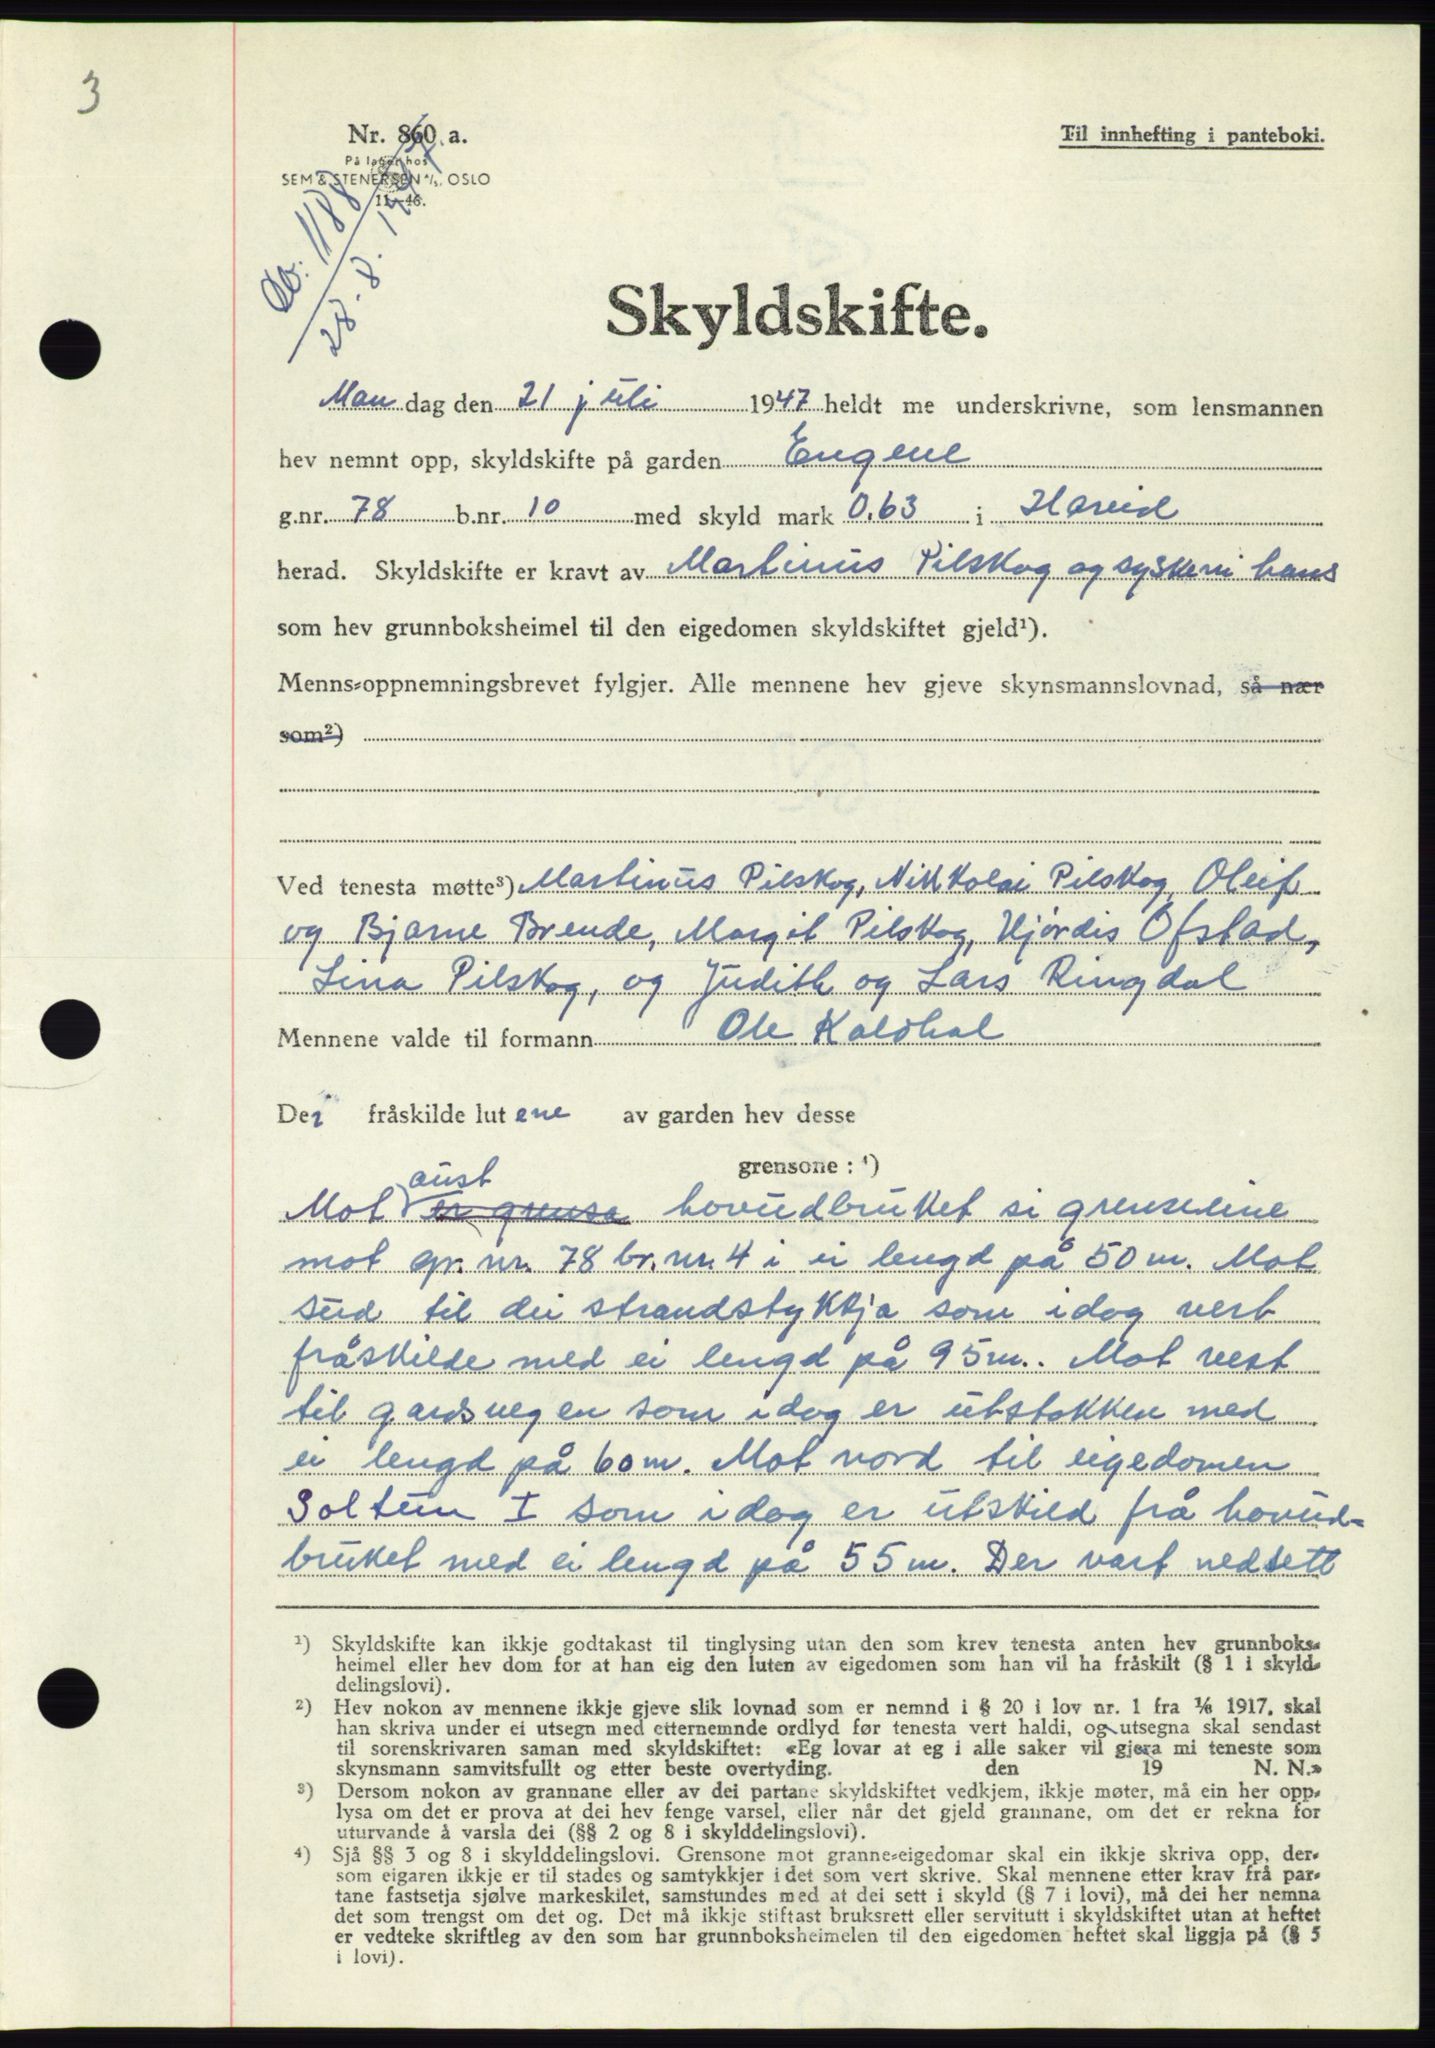 3
Nr. 860 a.
På lager hos
SEM & STENERSEN A/S, OSLO
11—46.
Til innhefting i panteboki.
Db. 1188
28.8.1947
Skyldskifte.
Man dag den 21 juli 1947 heldt me underskrivne, som lensmannen
hev nemnt opp, skyldskifte på garden Engene
g.nr. 78 b.nr. 10 med skyld mark 0.63 i Hareid
herad. Skyldskifte er kravt av Martinus Pilskog og syskeni hans
som hev grunnboksheimel til den eigedomen skyldskiftet gjeld¹).
Menns-oppnemningsbrevet fylgjer. Alle mennene hev gjeve skynsmannslovnad, så nær
som²)
Ved tenesta møtte³) Martinus Pilskog, Nikkolai Pilskog, Oleif
og Bjarne Brende, Margit Pilskog, Hjørdis Ofstad,
Lina Pilskog, og Judith og Lars Ringdal
Mennene valde til formann Ole Kaldhol
Dei fråskilde lutene av garden hev desse
grensone: ⁴)
aust
Mot er grensa hovudbruket si grenseline
mot gr. nr. 78 br. nr. 4 i ei lengd på 50 m. Mot
sud til dei strandstykkja som idag vert
fråskilde med ei lengd på 95 m.. Mot vest
til gardsvegen som idag er utstokken med
ei lengd på 60 m. Mot nord til eigedomen
Soltun I som idag er utskild frå hovud=
bruket med ei lengd på 55 m. Der vart nedsett
¹) Skyldskifte kan ikkje godtakast til tinglysing utan den som krev tenesta anten hev grunnboks-
heimel eller hev dom for at han eig den luten av eigedomen som han vil ha fråskilt (§ 1 i skyld-
delingslovi).
²) Hev nokon av mennene ikkje gjeve slik lovnad som er nemnd i § 20 i lov nr. 1 fra 1/6 1917, skal
han skriva under ei utsegn med etternemnde ordlyd før tenesta vert haldi, og utsegna skal sendast
til sorenskrivaren saman med skyldskiftet: «Eg lovar at eg i alle saker vil gjera mi teneste som
skynsmann samvitsfullt og etter beste overtyding. den 19 N. N.»
³) Dersom nokon av grannane eller av dei partane skyldskiftet vedkjem, ikkje møter, må ein her opp-
lysa om det er prova at dei hev fenge varsel, eller når det gjeld grannane, om det er rekna for
uturvande å varsla dei (§§ 2 og 8 i skylddelingslovi).
⁴) Sjå §§ 3 og 8 i skylddelingslovi. Grensone mot granne-eigedomar skal ein ikkje skriva opp, der-
som eigaren ikkje er til stades og samtykkjer i det som vert skrive. Skal mennene etter krav frå par-
tane fastsetja sjølve markeskilet, samstundes med at dei sett i skyld (§ 7 i lovi), må dei her nemna
det som trengst om det og. Det må ikkje stiftast bruksrett eller servitutt i skyldskiftet utan at heftet
er vedteke skriftleg av den som har grunnboksheimelen til den eigedomen heftet skal liggja på (§ 5
i lovi).